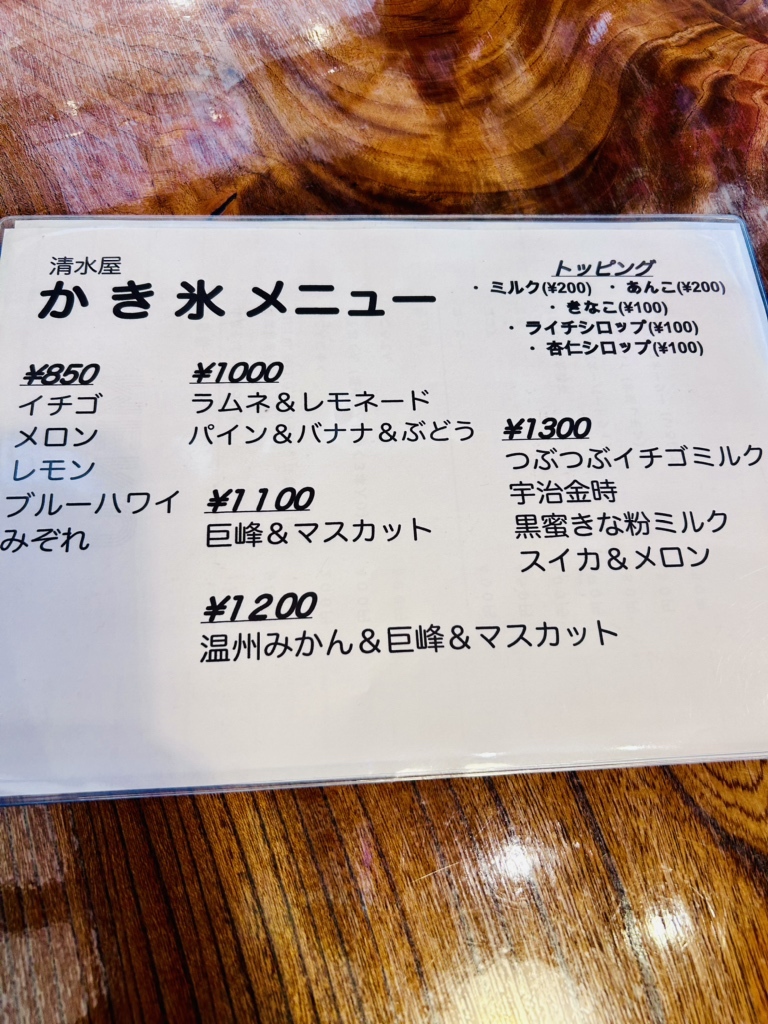 清水屋
かき氷 メニュー
トッピング
・ミルク(¥200) ・あんこ(¥200)
・きなこ(¥100)
・ライチシロップ(¥100)
・杏仁シロップ(¥100)
¥850
イチゴ
メロン
レモン
ブルーハワイ
みぞれ
¥1000
ラムネ&レモネード
パイン&バナナ&ぶどう
¥1100
巨峰&マスカット
¥1200
温州みかん&巨峰&マスカット
¥1300
つぶつぶイチゴミルク
宇治金時
黒蜜きな粉ミルク
スイカ&メロン